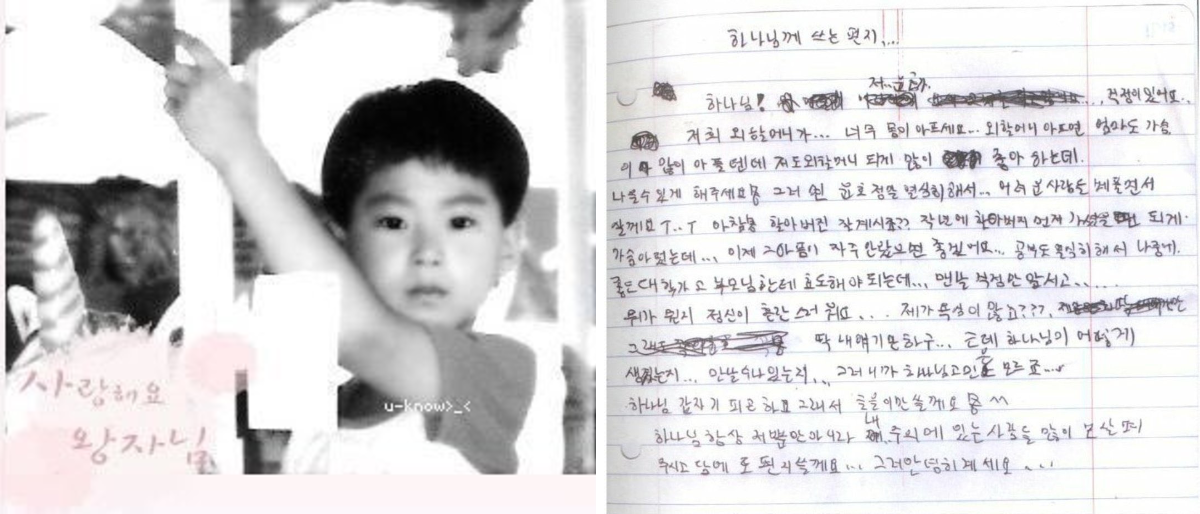 사랑해요
왕자님
u-know>_<
하나님께 쓰는 편지...
저.. 윤호가.
하나님! ...걱정이 있어요..
저희 외할머니가... 너무 몸이 아프세요... 외할머니 아프면 엄마도 가슴
이 많이 아플텐데 저도 외할머니 되게 많이 좋아 하는데.
나을수 있게 해주세요 그러면 윤호 정말 열심히 해서.. 어려운 사람들
살께요 T..T 아참 할아버진 잘계시죠?? 작년에 할아버지 먼저 되게
가슴아펐는데..., 이제 그아픔이 자주 안왔으면 좋겠어요... 공부도 열심히 해서 나중에.
좋은대학가고 부모님한테 효도해야 되는데... 맨날 걱정만 앞서고.....
뭐가 뭔지 정신이 혼란 스러 워요... 제가 욕심이 많죠???,
딱 내얘기만 하구... 근데 하나님의 어떻게
생겼는지... 만날수나 있는지... 그러니까 하나님 모르죠...
하나님 갑자기 피곤하요 그래서 줄께요 ^^
하나님 항상 저뿐만 아니라 내 주위에 있는 사람들 많이 보살펴
주시고 담에 또 편지쓸께요... 그럼안녕히계세요...